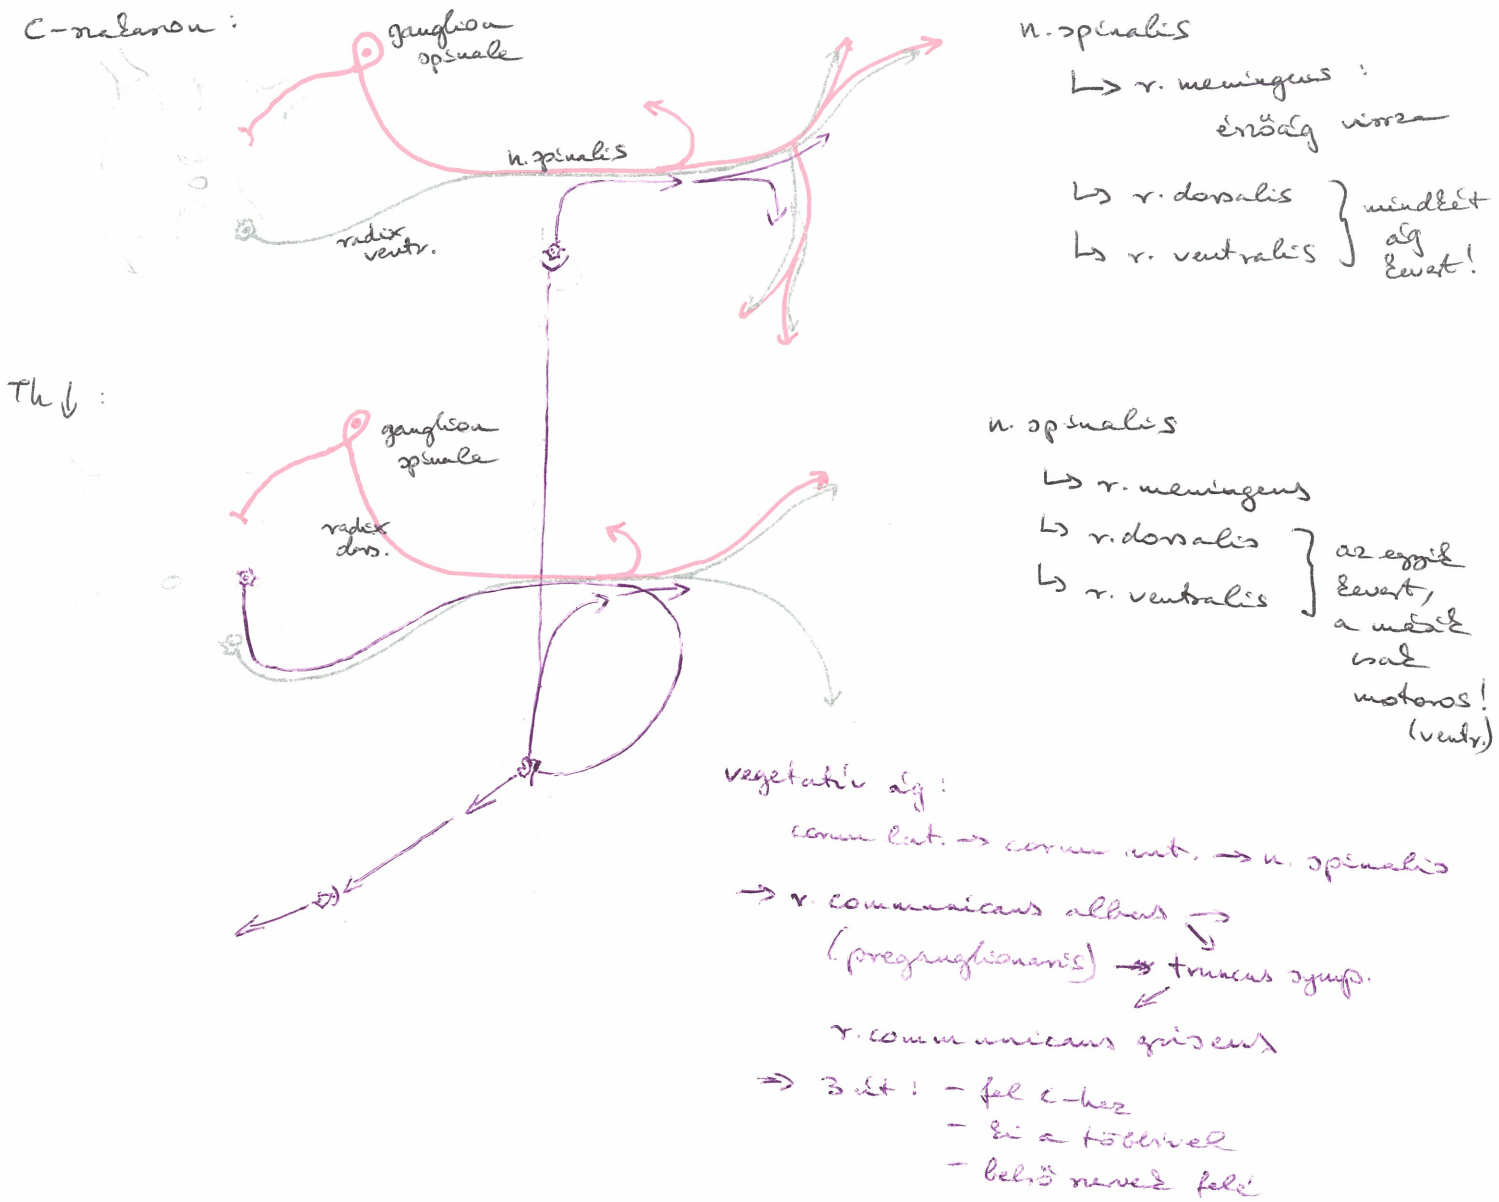 C-szakaszon :
ganglion
spinale
n. spinalis
radix
ventr.
n. spinalis
↳ r. meningeus :
érzőág vissza
↳ r. dorsalis
↳ r. ventralis
mindkét
ág
kevert!
Th ↓ :
ganglion
spinale
radix
dors.
n. spinalis
↳ r. meningeus
↳ r. dorsalis
↳ r. ventralis
az egyik
kevert,
a másik
csak
motoros!
(ventr.)
vegetatív ág :
cornu lat. → cornu ant. → n. spinalis
→ r. communicans albus →
(preganglionaris) → truncus symp.
r. communicans griseus
⇒ 3 út : - fel C-hez
- ki a többivel
- belső szervek felé